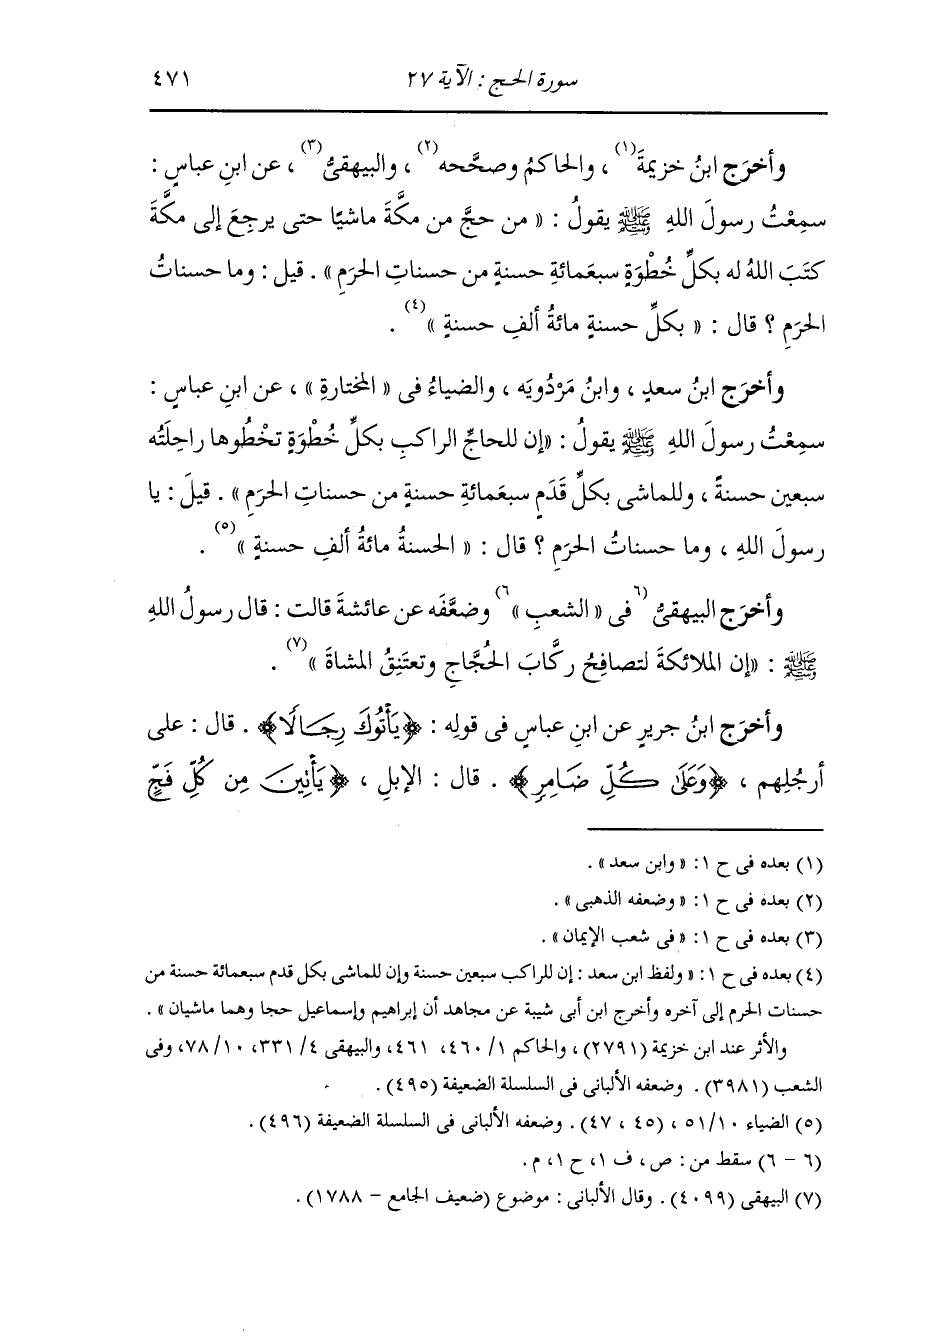 سورة الحج : الآية ٢٧ ٤٧١
وأخرَج ابنُ خزيمةَ(١) ، والحاكمُ وصحَّحه(٢) ، والبيهقىُّ(٣) ، عن ابنِ عباسٍ :
سمِعْتُ رسولَ اللهِ ﷺ يقولُ : « من حجَّ من مكَّةَ ماشيًا حتى يرجِعَ إلى مكَّةَ
كتَبَ اللهُ له بكلِّ خُطْوَةٍ سبعَمائةِ حسنةٍ من حسناتِ الحرَمِ » . قيل : وما حسناتُ
الحرَمِ ؟ قال : « بكلِّ حسنةٍ مائةُ ألفِ حسنةٍ »(٤) .
وأخرَج ابنُ سعدٍ ، وابنُ مَرْدُويَه ، والضياءُ فى « المختارةِ » ، عن ابنِ عباسٍ :
سمِعْتُ رسولَ اللهِ ﷺ يقولُ : «إن للحاجِّ الراكبِ بكلِّ خُطْوَةٍ تخْطُوها راحِلَتُه
سبعين حسنةً ، وللماشى بكلِّ قَدَمٍ سبعَمائةِ حسنةٍ من حسناتِ الحرَمِ » . قيلَ : يا
رسولَ اللهِ ، وما حسناتُ الحرَمِ ؟ قال : « الحسنةُ مائةُ ألفِ حسنةٍ »(٥) .
وأخرَج البيهقىُّ (٦فى « الشعبِ »٦) وضعَّفَه عن عائشةَ قالت : قال رسولُ اللهِ
ﷺ : «إن الملائكةَ لتصافِحُ ركَّابَ الحُجَّاجِ وتعتَنِقُ المشاةَ »(٧) .
وأخرَج ابنُ جريرٍ عن ابنِ عباسٍ فى قولِه : ﴿يَأْتُوكَ رِجَالًا﴾ . قال : على
أرجُلِهم ، ﴿وَعَلَىٰ كُلِّ ضَامِرٍ﴾ . قال : الإبلِ ، ﴿يَأْتِينَ مِن كُلِّ فَجٍّ
(١) بعده فى ح ١: « وابن سعد » .
(٢) بعده فى ح ١: « وضعفه الذهبى » .
(٣) بعده فى ح ١: « فى شعب الإيمان » .
(٤) بعده فى ح ١: « ولفظ ابن سعد : إن للراكب سبعين حسنة وإن للماشى بكل قدم سبعمائة حسنة من
حسنات الحرم إلى آخره وأخرج ابن أبى شيبة عن مجاهد أن إبراهيم وإسماعيل حجا وهما ماشيان » .
والأثر عند ابن خزيمة (٢٧٩١) ، والحاكم ١/ ٤٦٠، ٤٦١، والبيهقى ٤/ ٣٣١، ١٠/ ٧٨، وفى
الشعب (٣٩٨١) . وضعفه الألبانى فى السلسلة الضعيفة (٤٩٥) .
(٥) الضياء ٥١/١٠ ، (٤٥ ، ٤٧) . وضعفه الألبانى فى السلسلة الضعيفة (٤٩٦) .
(٦ - ٦) سقط من : ص، ف ١، ح ١، م.
(٧) البيهقى (٤٠٩٩) . وقال الألبانى : موضوع (ضعيف الجامع - ١٧٨٨) .